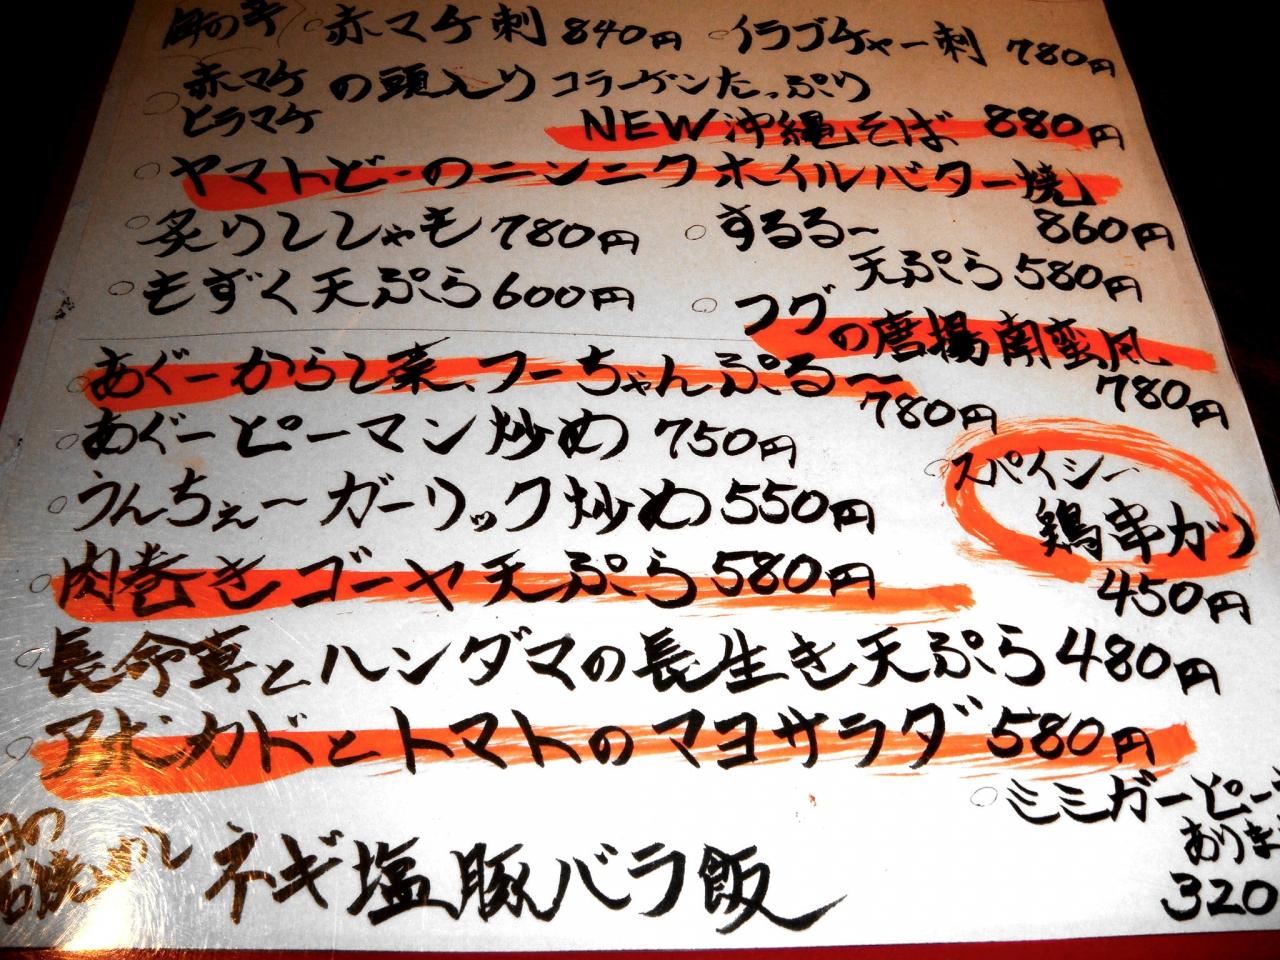 赤マケ刺 840円 イラブチャー刺 780円
赤マケ の頭入り コラーゲンたっぷり
ヒラマケ NEW沖縄そば 880円
ヤマトビーのニンニクホイルバター焼
860円
炙りししゃも 780円 するる〜
天ぷら 580円
もずく天ぷら 600円
フグの唐揚南蛮風
780円
あぐーからし菜、フーちゃんぷる〜
780円
あぐーピーマン炒め 750円
スパイシー
鶏串カツ
450円
うんちぇ〜ガーリック炒め 550円
肉巻きゴーヤ天ぷら 580円
長命草とハンダマの長生き天ぷら 480円
アボカドとトマトのマヨサラダ 580円
ミミガーピー
ありま
320
ネギ塩豚バラ飯